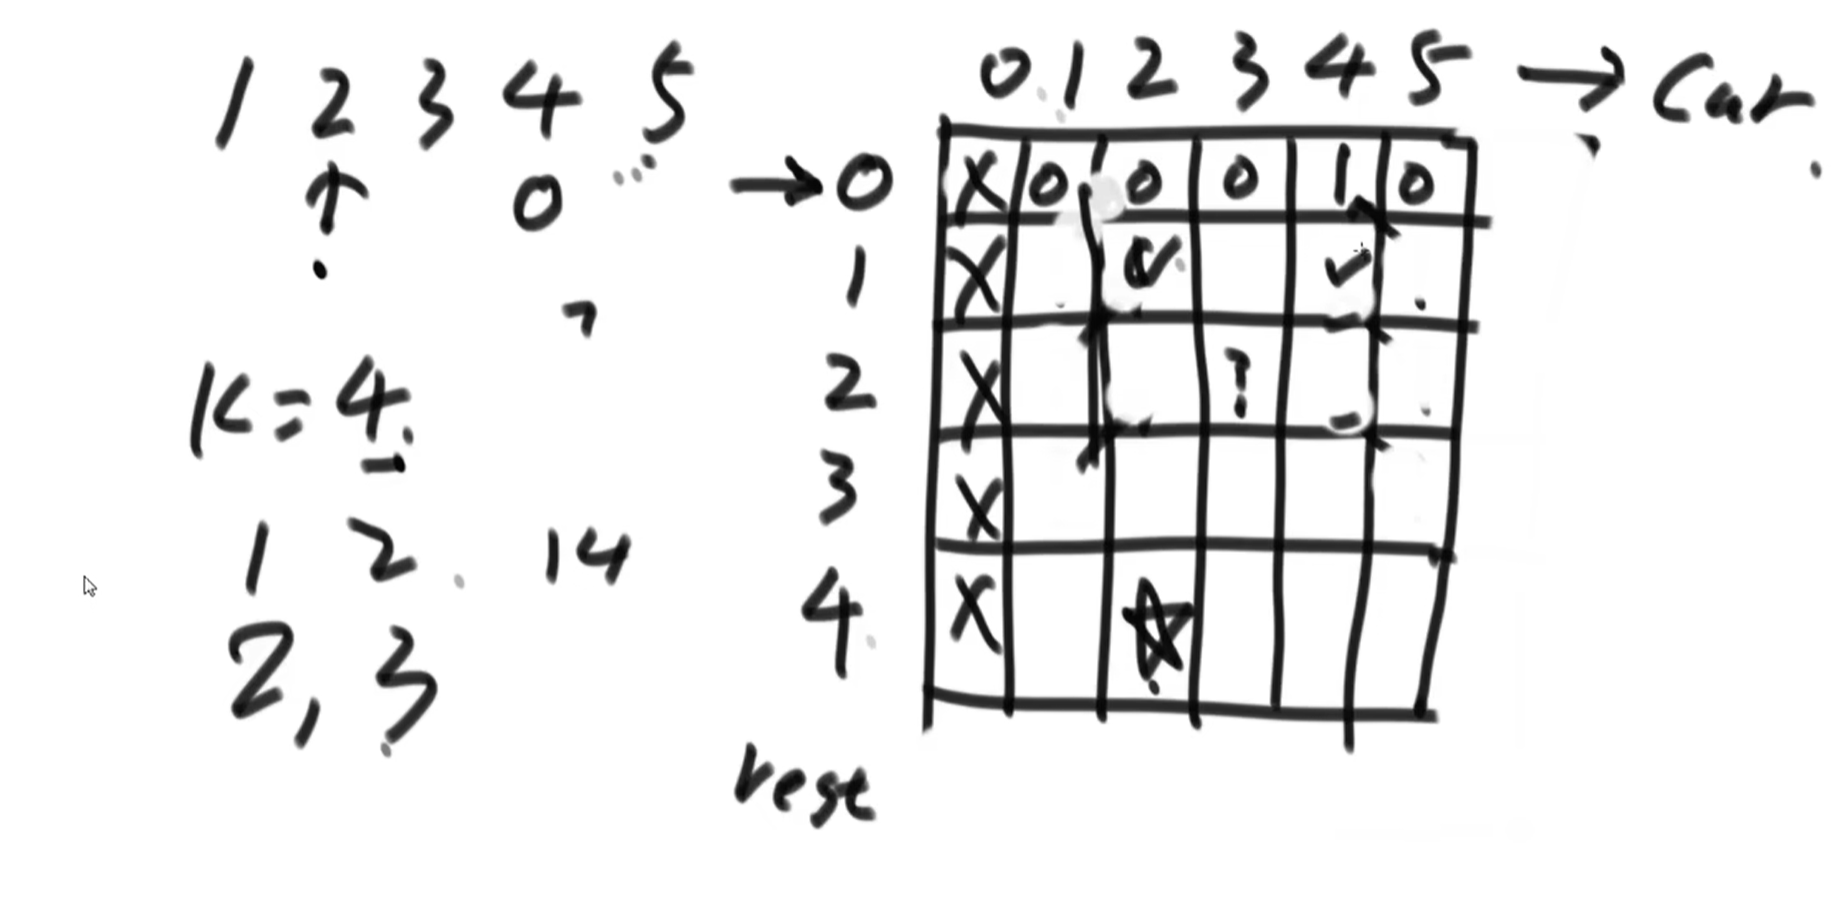 1 2 3 4 5
0
K=4
1 2 14
2, 3
0 1 2 3 4 5 → Cur
→ 0 X 0 0 0 1 0
1 X
2 X ?
3 X
4 X
rest